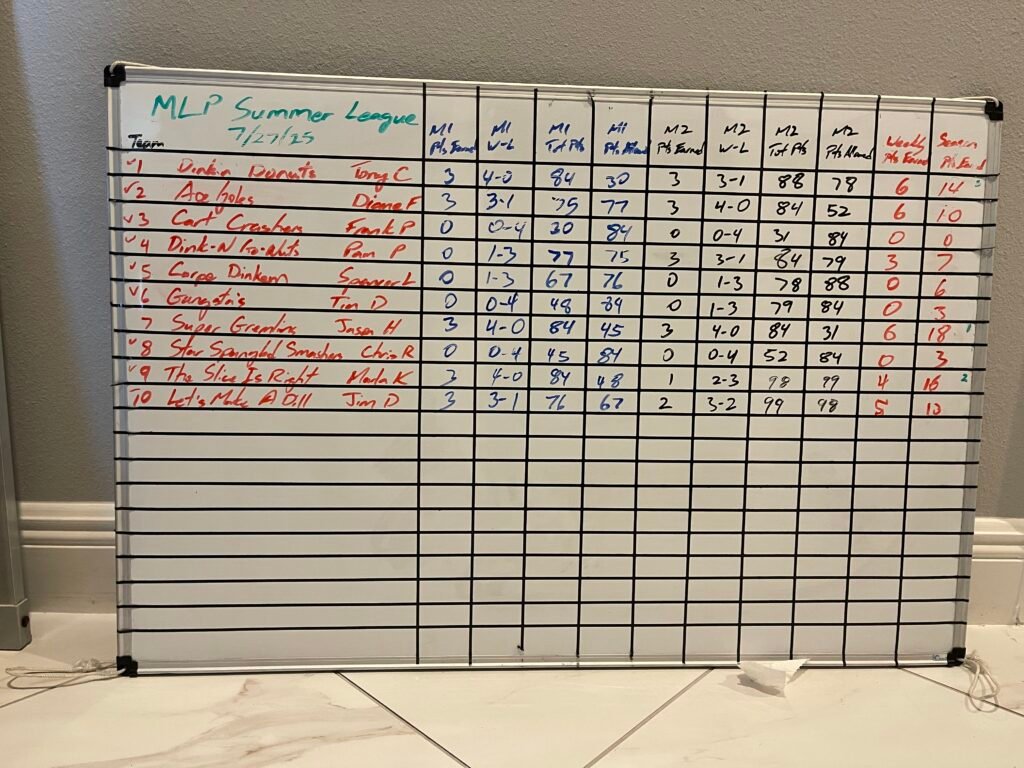 MLP Summer League
7/27/25
Team M1 Pts Earned M1 W-L M1 Tot Pts M1 Pts Allowed M2 Pts Earned M2 W-L M2 Tot Pts M2 Pts Allowed Weekly Pts Earned Season Pts Earned
✓1 Dinkin Donuts Tony C 3 4-0 84 30 3 3-1 88 78 6 14 3
✓2 Ace holes Diane F 3 3-1 75 77 3 4-0 84 52 6 10
✓3 Cart Crashers Frank P 0 0-4 30 84 0 0-4 31 84 0 0
✓4 Dink-N Pro-Nuts Pam P 0 1-3 77 75 3 3-1 84 79 3 7
✓5 Carpe Dinkem Spencer L 0 1-3 67 76 0 1-3 78 88 0 6
✓6 Gangsta's Tim D 0 0-4 48 84 0 1-3 79 84 0 3
7 Super Gremlins Jason H 3 4-0 84 45 3 4-0 84 31 6 18 1
✓8 Star Spangled Smashers Chris R 0 0-4 45 84 0 0-4 52 84 0 3
✓9 The Slice Is Right Marla K 3 4-0 84 48 1 2-3 98 99 4 16 2
10 Let's Make A Dill Jim D 3 3-1 76 67 2 3-2 99 98 5 13